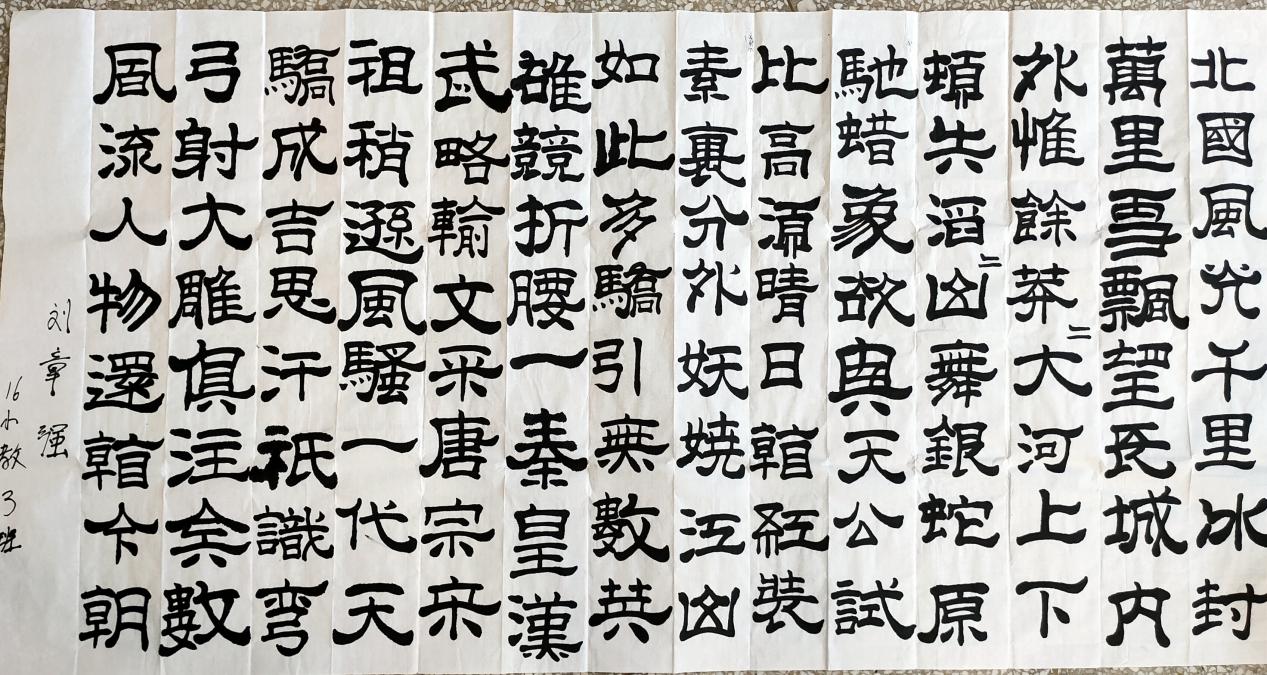 北國風光千里冰封
萬里雪飄望長城內
外惟餘莽=大河上下
頓失滔=山舞銀蛇原
馳蜡象欲與天公試
比高須晴日看紅裝
素裹分外妖嬈江山
如此多驕引無數英
雄競折腰一秦皇漢
武略輸文采唐宗宋
祖稍遜風騷一代天
驕成吉思汗祇識彎
弓射大雕俱往矣數
風流人物還看今朝
刘章强
16小教3班